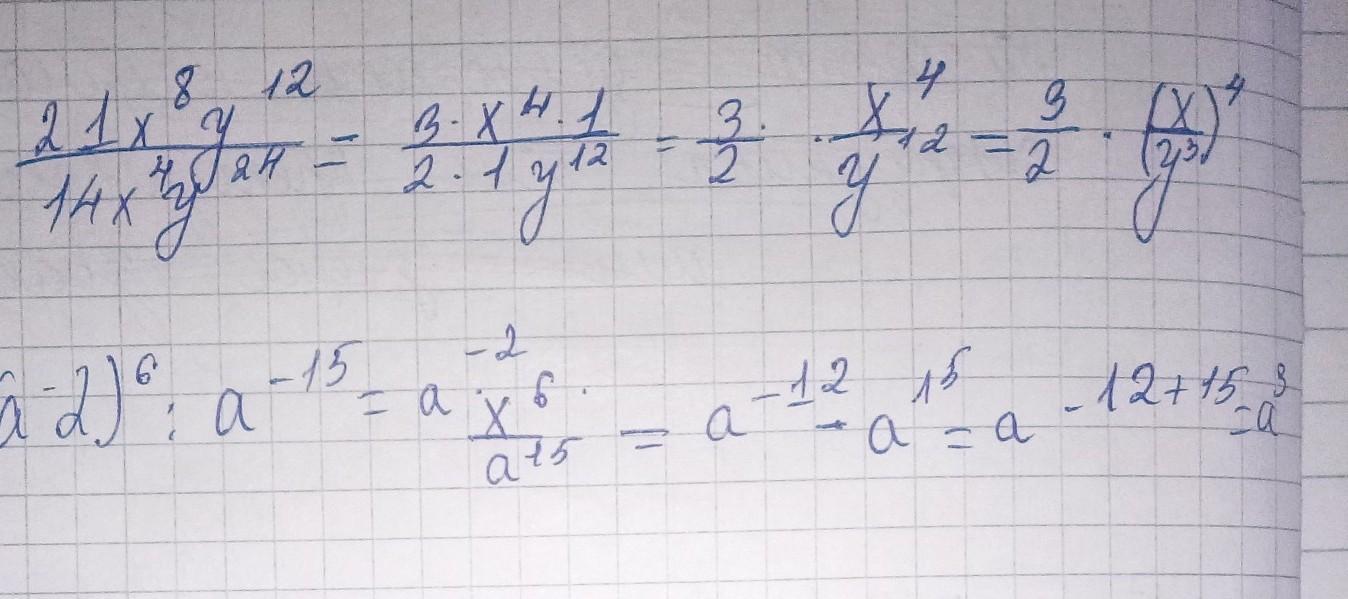 21x⁸y¹²/14x⁴y²⁴ = 3·x⁴·1/2·1y¹² = 3/2 · x⁴/y¹² = 3/2 · (x/y³)⁴
a⁻²)⁶ : a⁻¹⁵ = a⁻²ˣ⁶/a¹⁵ = a⁻¹² - a¹⁵ = a⁻¹²⁺¹⁵ = a³